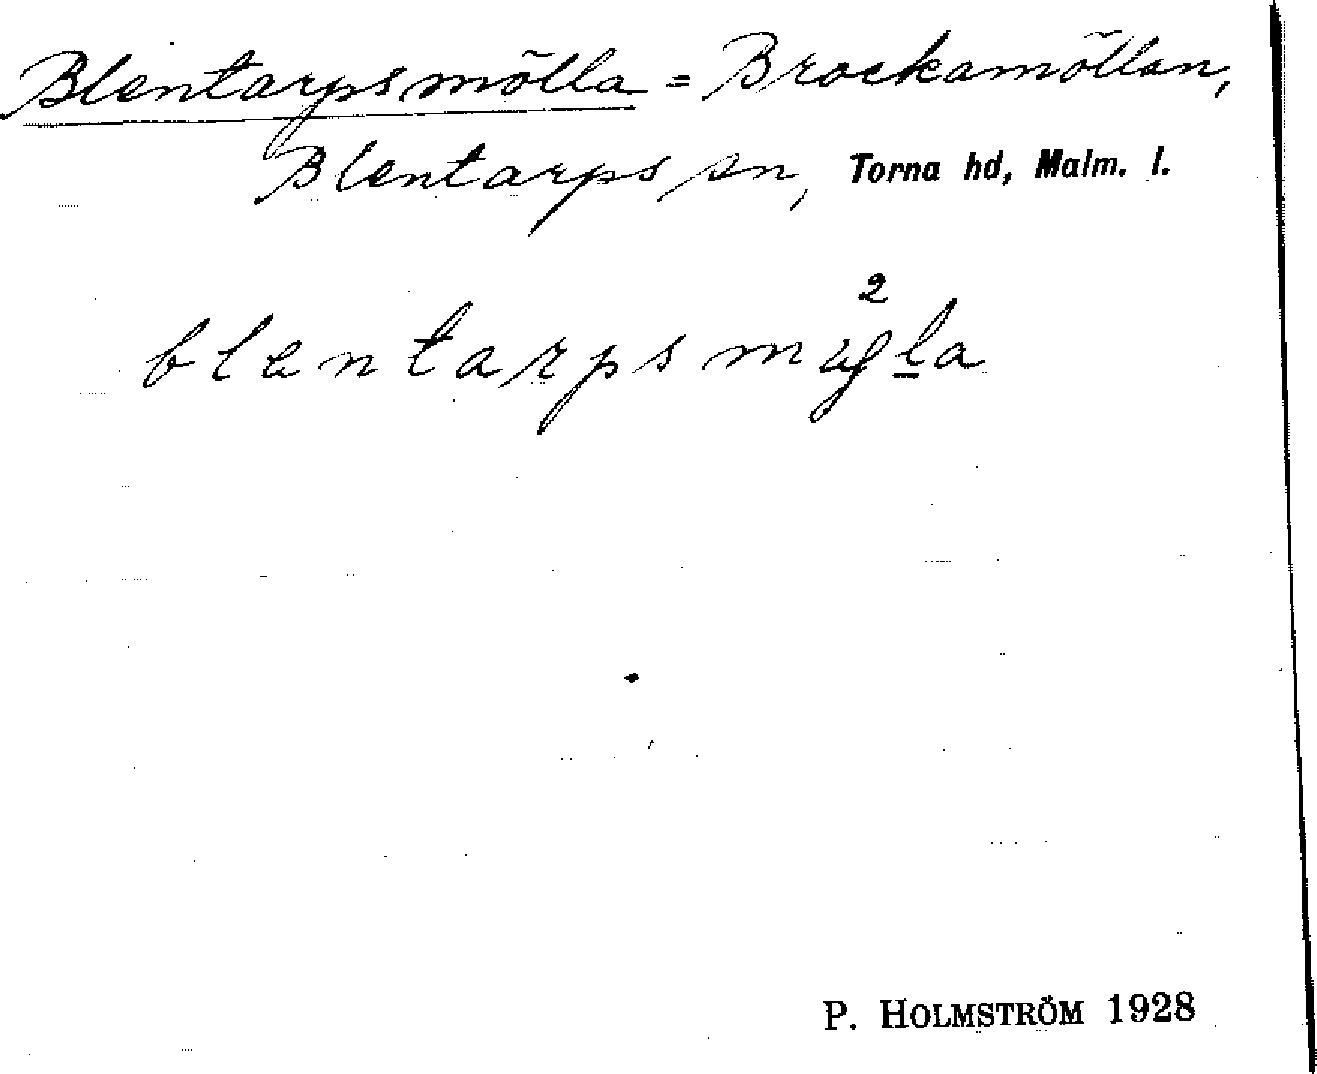 Blentarpsmölla = Brockamöllan,
Blentarps sn, Torna hd, Malm. l.
P. HOLMSTRÖM 1928